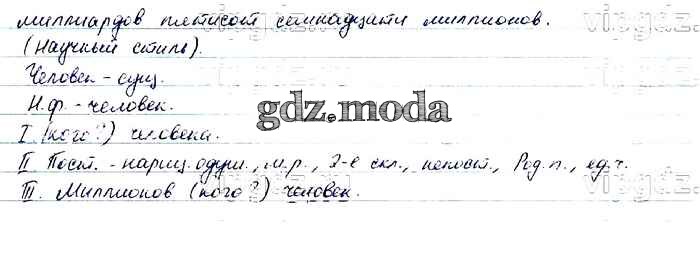 миллиардов пятисот семнадцати миллионов.
(Научный стиль).
Человек - сущ.
Н.ф. - человек.
I (кого?) человека.
II Пост. - нариц. одуш., м.р., 2-е скл., непост., Род.п., ед.ч.
III. Миллионов (кого?) человек.
gdz.moda
vipgdz.
vipgdz.